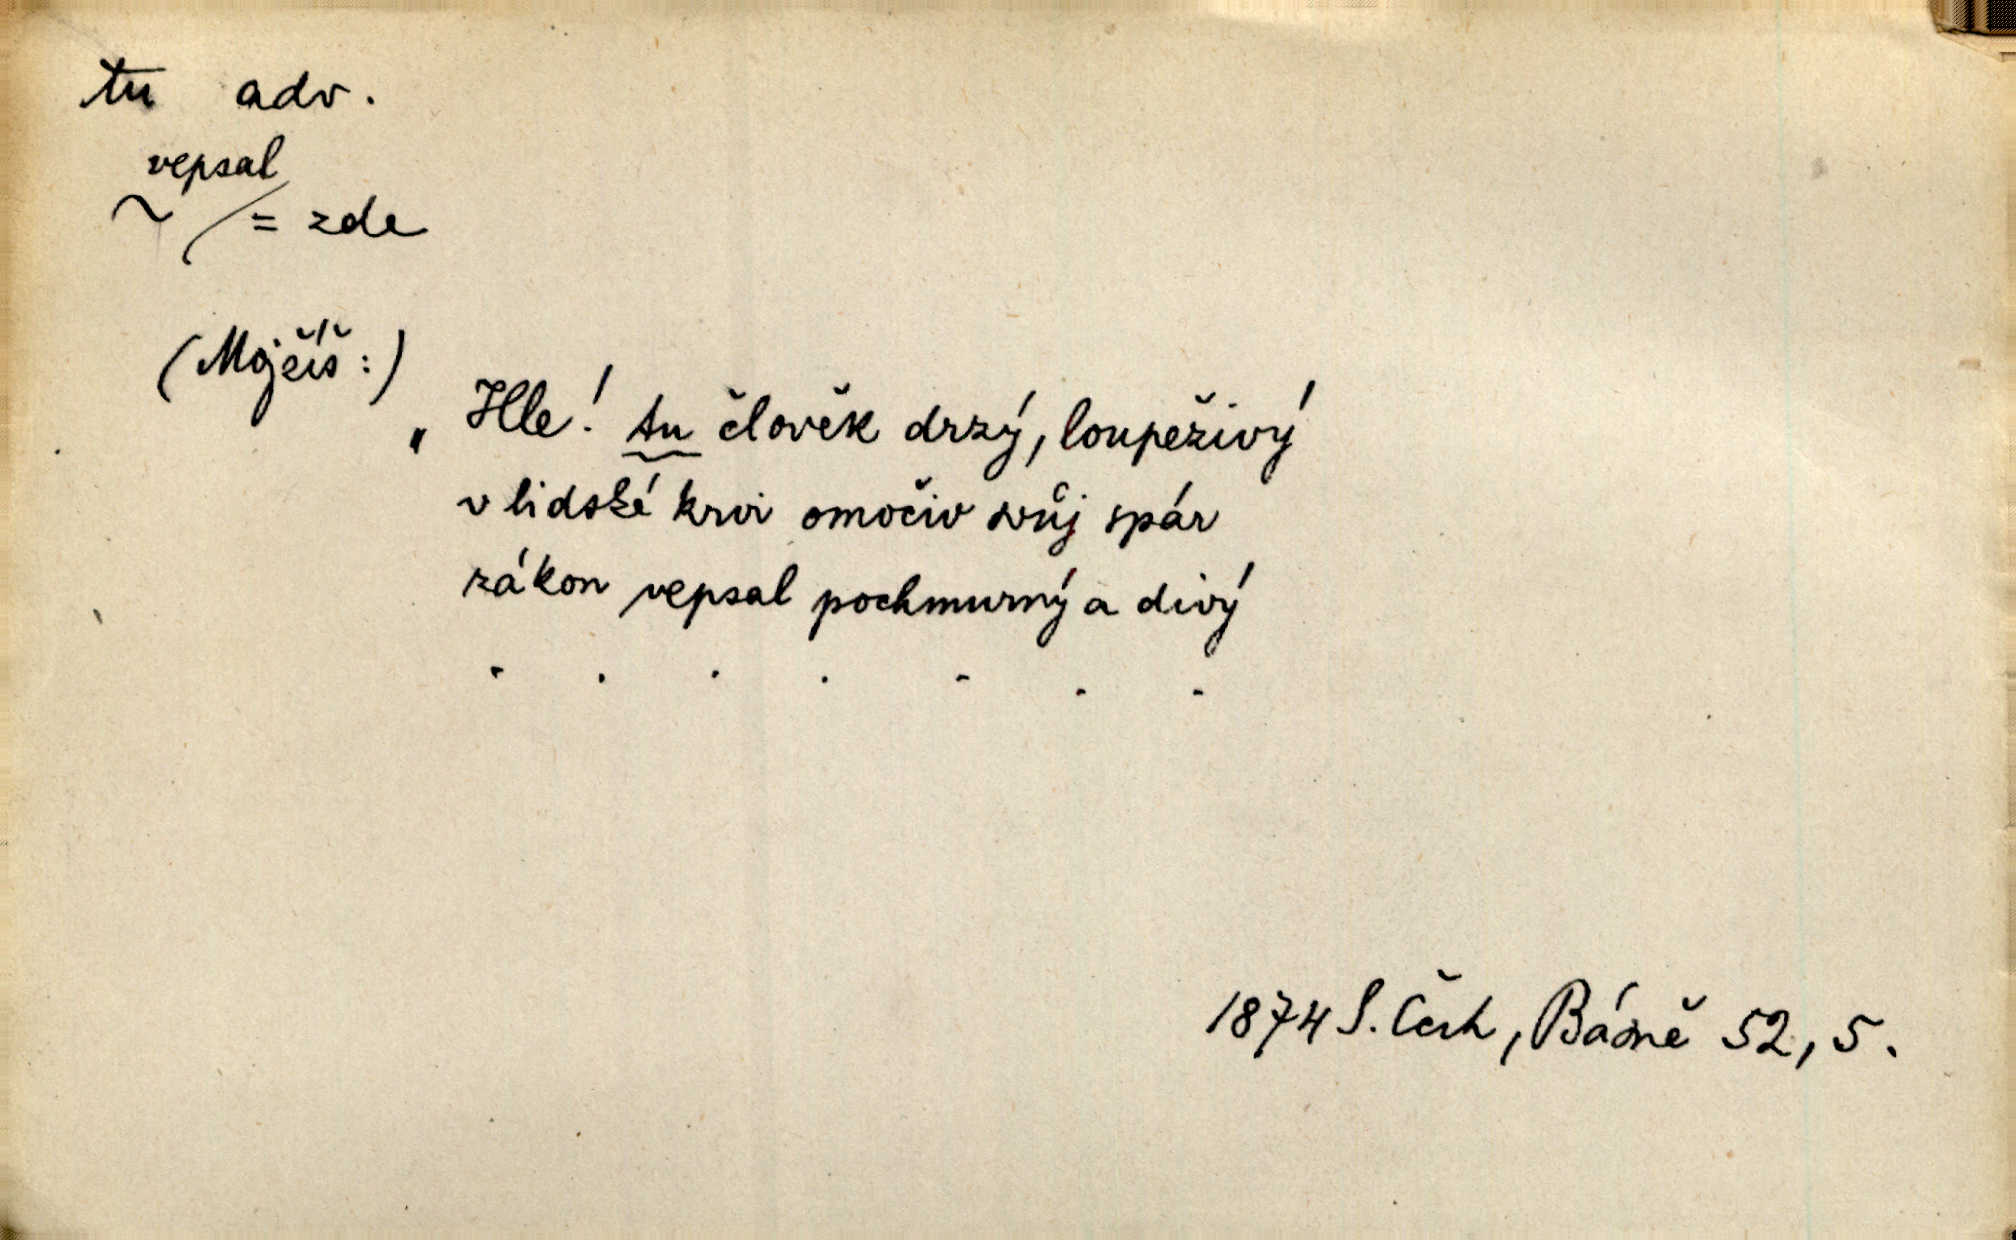 tu adv.
vepsal
~ /= zde
(Mojžíš:)
„Hle! tu člověk drzý, loupeživý
v lidské krvi omočiv svůj spár
zákon vepsal pochmurný a divý
. . . . . . .
1874 S. Čech, Básně 52, 5.